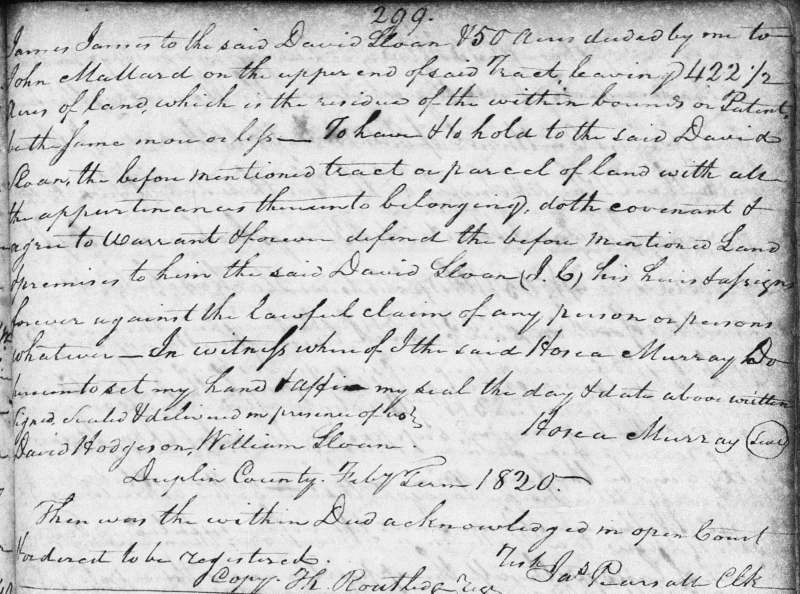 299.
James James to the said David Sloan & 50 Acres deeded by me to
John Mallard on the upper end of said Tract, leaving 422 1/2
Acres of land, which is the residue of the within bounds or Patent,
be the same more or less — To have & to hold to the said David
Sloan, the before mentioned tract or parcel of land with all
the appurtenances thereunto belonging, doth covenant &
agree to warrant & forever defend the before mentioned Land
& premises to him the said David Sloan (J. C) his heirs & assigns
forever against the lawful claim of any person or persons
whatever — In witness where of I the said Hosea Murray Do
hereunto set my hand & affix my seal the day & date above written
Signed, Sealed & delivered in presence of us
David Hodgeson, William Sloan. Hosea Murray (Seal)
Duplin County. Feby Term 1820. —
Then was the within Deed acknowledged in open Court
& ordered to be registered.
Test Jas Pearsall Clk
Copy. Th. Routledge Regr